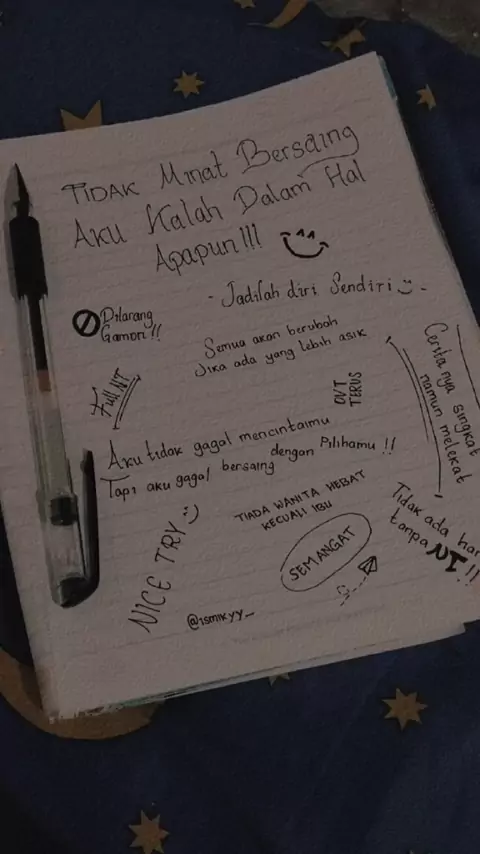 TIDAK Minat Bersaing
Aku Kalah Dalam Hal
Apapun!!!
- Jadilah diri Sendiri -
Dilarang
Gamon!!
Semua akan berubah
Jika ada yang lebih asik
Full NT
OVT
TERUS
Cerita nya singkat
namun melekat
Aku tidak gagal mencintaimu
Tapi aku gagal bersaing dengan Pilihamu!!
TIADA WANITA HEBAT
KECUALI IBU
Tidak ada har
tanpa
NICE TRY
SEMANGAT
@ismikyy_